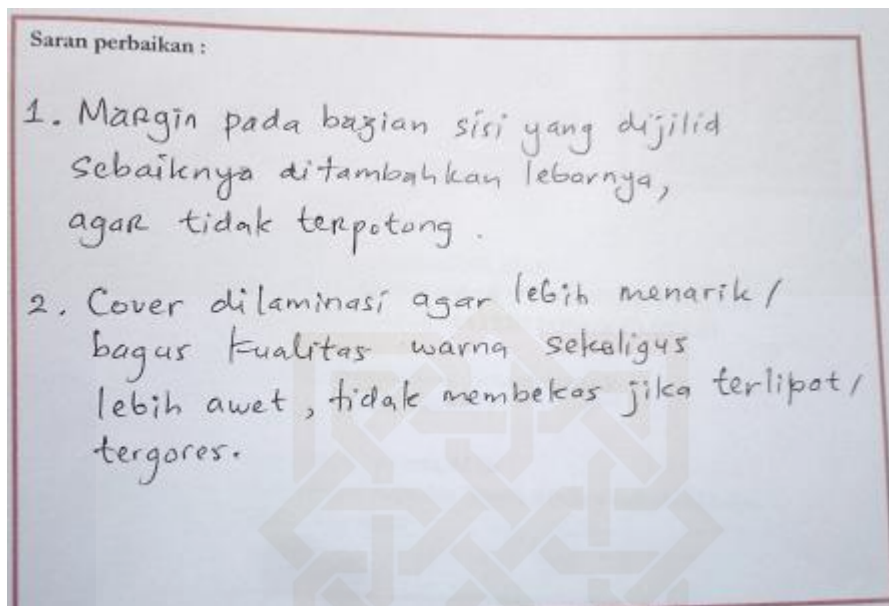 Saran perbaikan :
1. Margin pada bagian sisi yang dijilid
sebaiknya ditambahkan lebarnya,
agar tidak terpotong.
2. Cover dilaminasi agar lebih menarik /
bagus kualitas warna sekaligus
lebih awet, tidak membekas jika terlipat /
tergores.